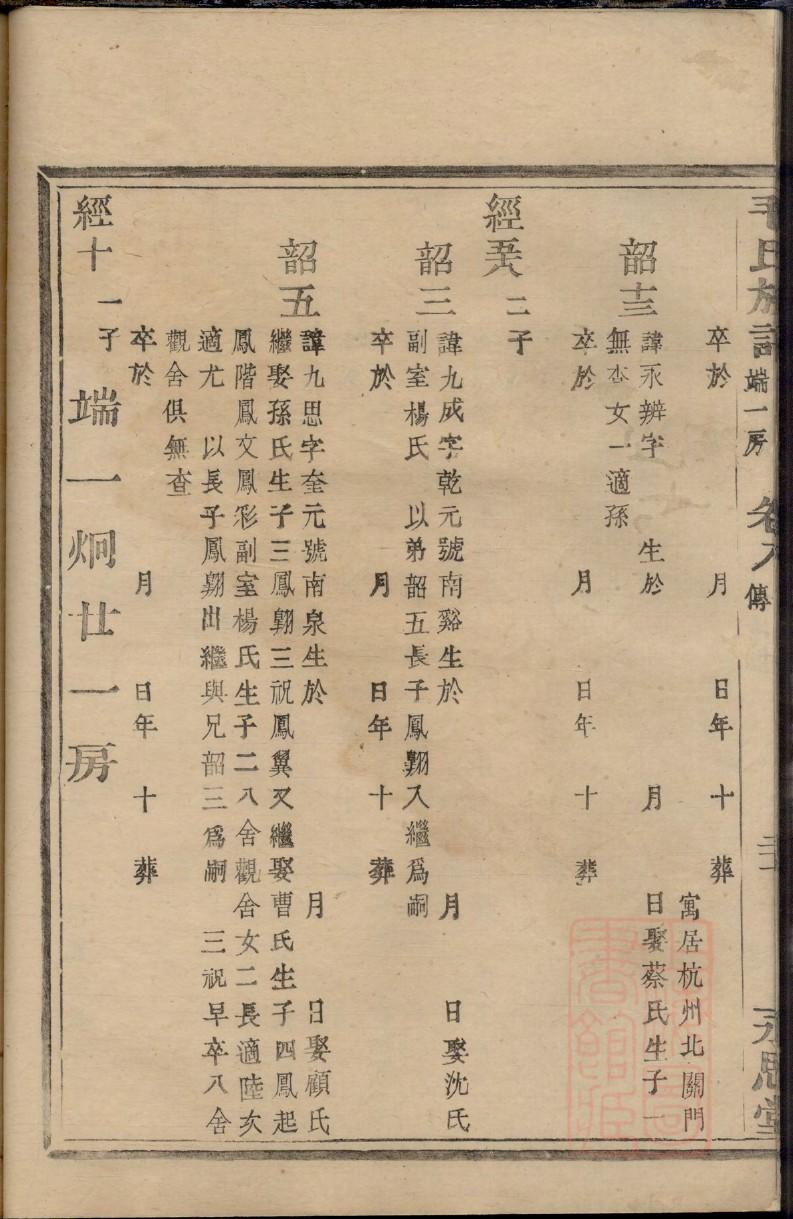 毛氏族譜 端一房 卷八 傳 三十 永思堂
卒於 月 日年 十 葬
寓居杭州北關門
韶十三 諱永辨字 生於 月 日娶蔡氏生子一
無杳女一適孫
卒於 月 日年 十 葬
二子
韶三 諱九成字乾元號南谿生於 月 日娶沈氏
副室楊氏 以弟韶五長子鳳翺入繼爲嗣
卒於 月 日年 十 葬
韶五 諱九思字奎元號南泉生於 月 日娶顧氏
繼娶孫氏生子三鳳翺三祝鳳翼又繼娶曹氏生子四鳳起
鳳階鳳文鳳彩副室楊氏生子二八舍觀舍女二長適陸次
適尤 以長子鳳翺出繼與兄韶三爲嗣 三祝早卒八舍
觀舍俱無查
卒於 月 日年 十 葬
經十 一子 端一炯廿一房